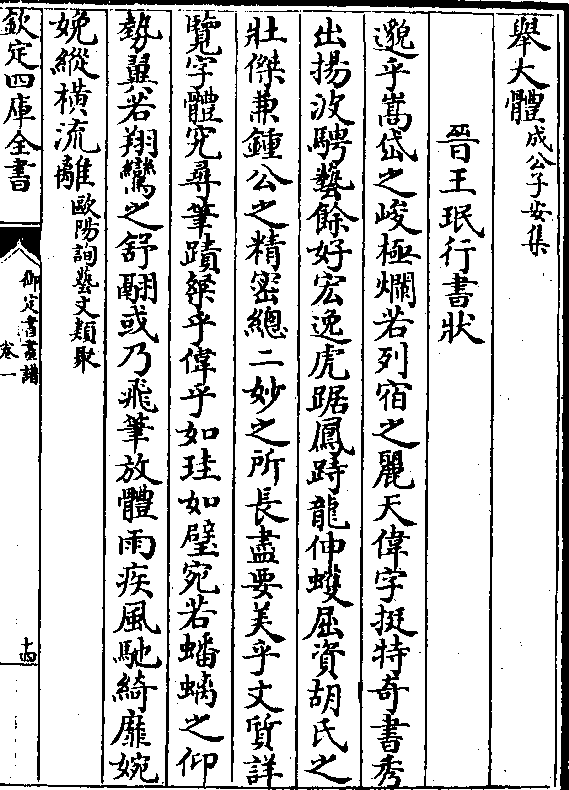 舉大體成公子安集
晉王珉行書狀
邈乎嵩岱之峻極爛若列宿之麗天偉字挺特奇書秀
出揚波騁藝餘好宏逸虎踞鳳跱龍伸蠖屈資胡氏之
壯傑兼鍾公之精密總二妙之所長盡要美乎文質詳
覽字體究尋筆蹟粲乎偉乎如珪如璧宛若蟠螭之仰
勢翼若翔鸞之舒翮或乃飛筆放體雨疾風馳綺靡婉
娩縱橫流離歐陽詢藝文類聚
欽定四庫全書
御定書畫譜
卷一
十四